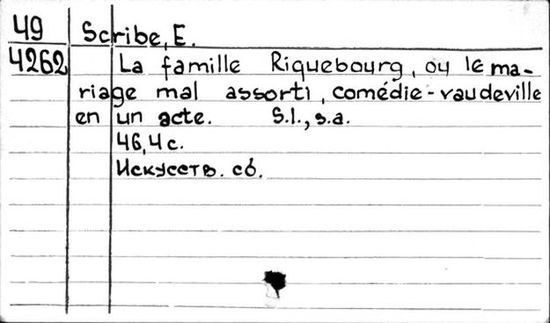 49 Scribe, E.
4262 La famille Riquebourg, ou le ma-
riage mal assorti, comédie-vaudeville
en un acte. S.l., s.a.
46,4 с.
Искусств. сб.